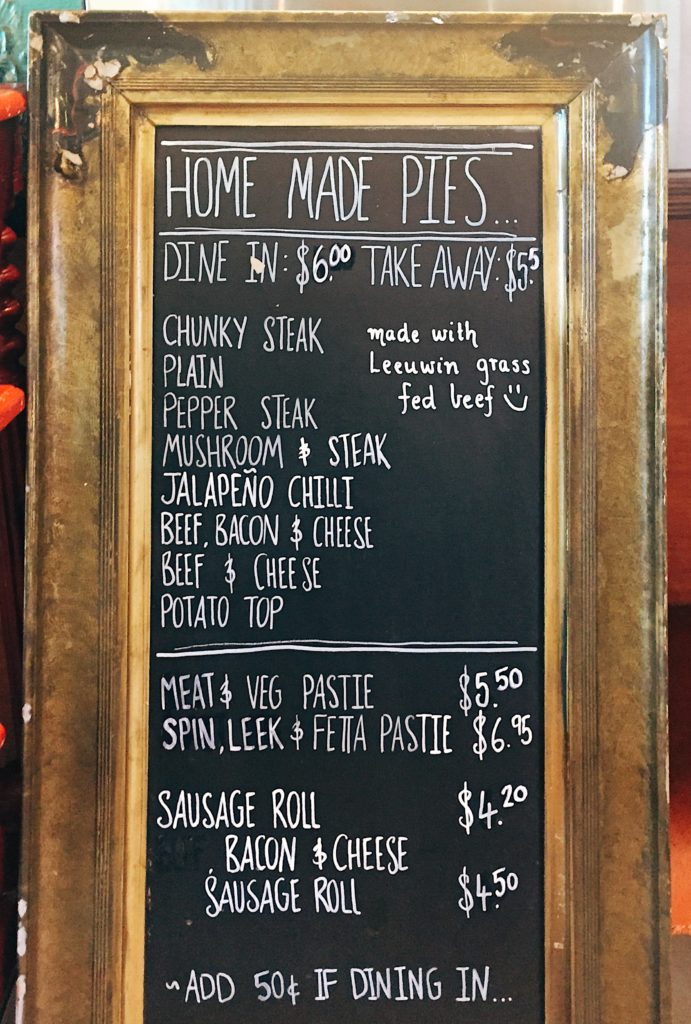 HOME MADE PIES...
DINE IN: $6.00 TAKE AWAY: $5.5
CHUNKY STEAK
made with
PLAIN
Leeuwin grass
PEPPER STEAK
fed beef
MUSHROOM & STEAK
JALAPEÑO CHILLI
BEEF, BACON & CHEESE
BEEF & CHEESE
POTATO TOP
MEAT & VEG PASTIE $5.50
SPIN, LEEK & FETTA PASTIE $6.95
SAUSAGE ROLL $4.20
BACON & CHEESE
SAUSAGE ROLL $4.50
~ADD 50¢ IF DINING IN...